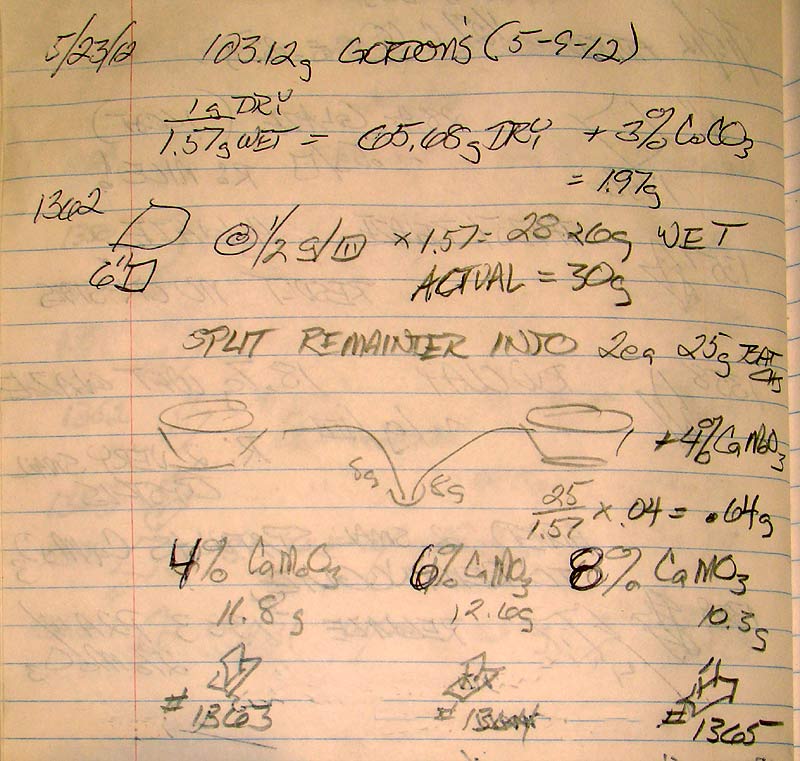 5/23/12 103.12g GORDON'S (5-9-12)
1g DRY
1.57g WET = 65.68g DRY + 3% CoCO3
= 1.97g
1362
@ 1/2 g/ × 1.57 = 28.26g WET
6"
ACTUAL = 30g
SPLIT REMAINTER INTO 2ea 25g BATCHS
+4% CaMoO3
8g 8g
25
1.57 × .04 = .64g
4% CaMoO3 6% CaMO3 8% CaMO3
11.8g 12.6g 10.3g
#1363 #1364 #1365